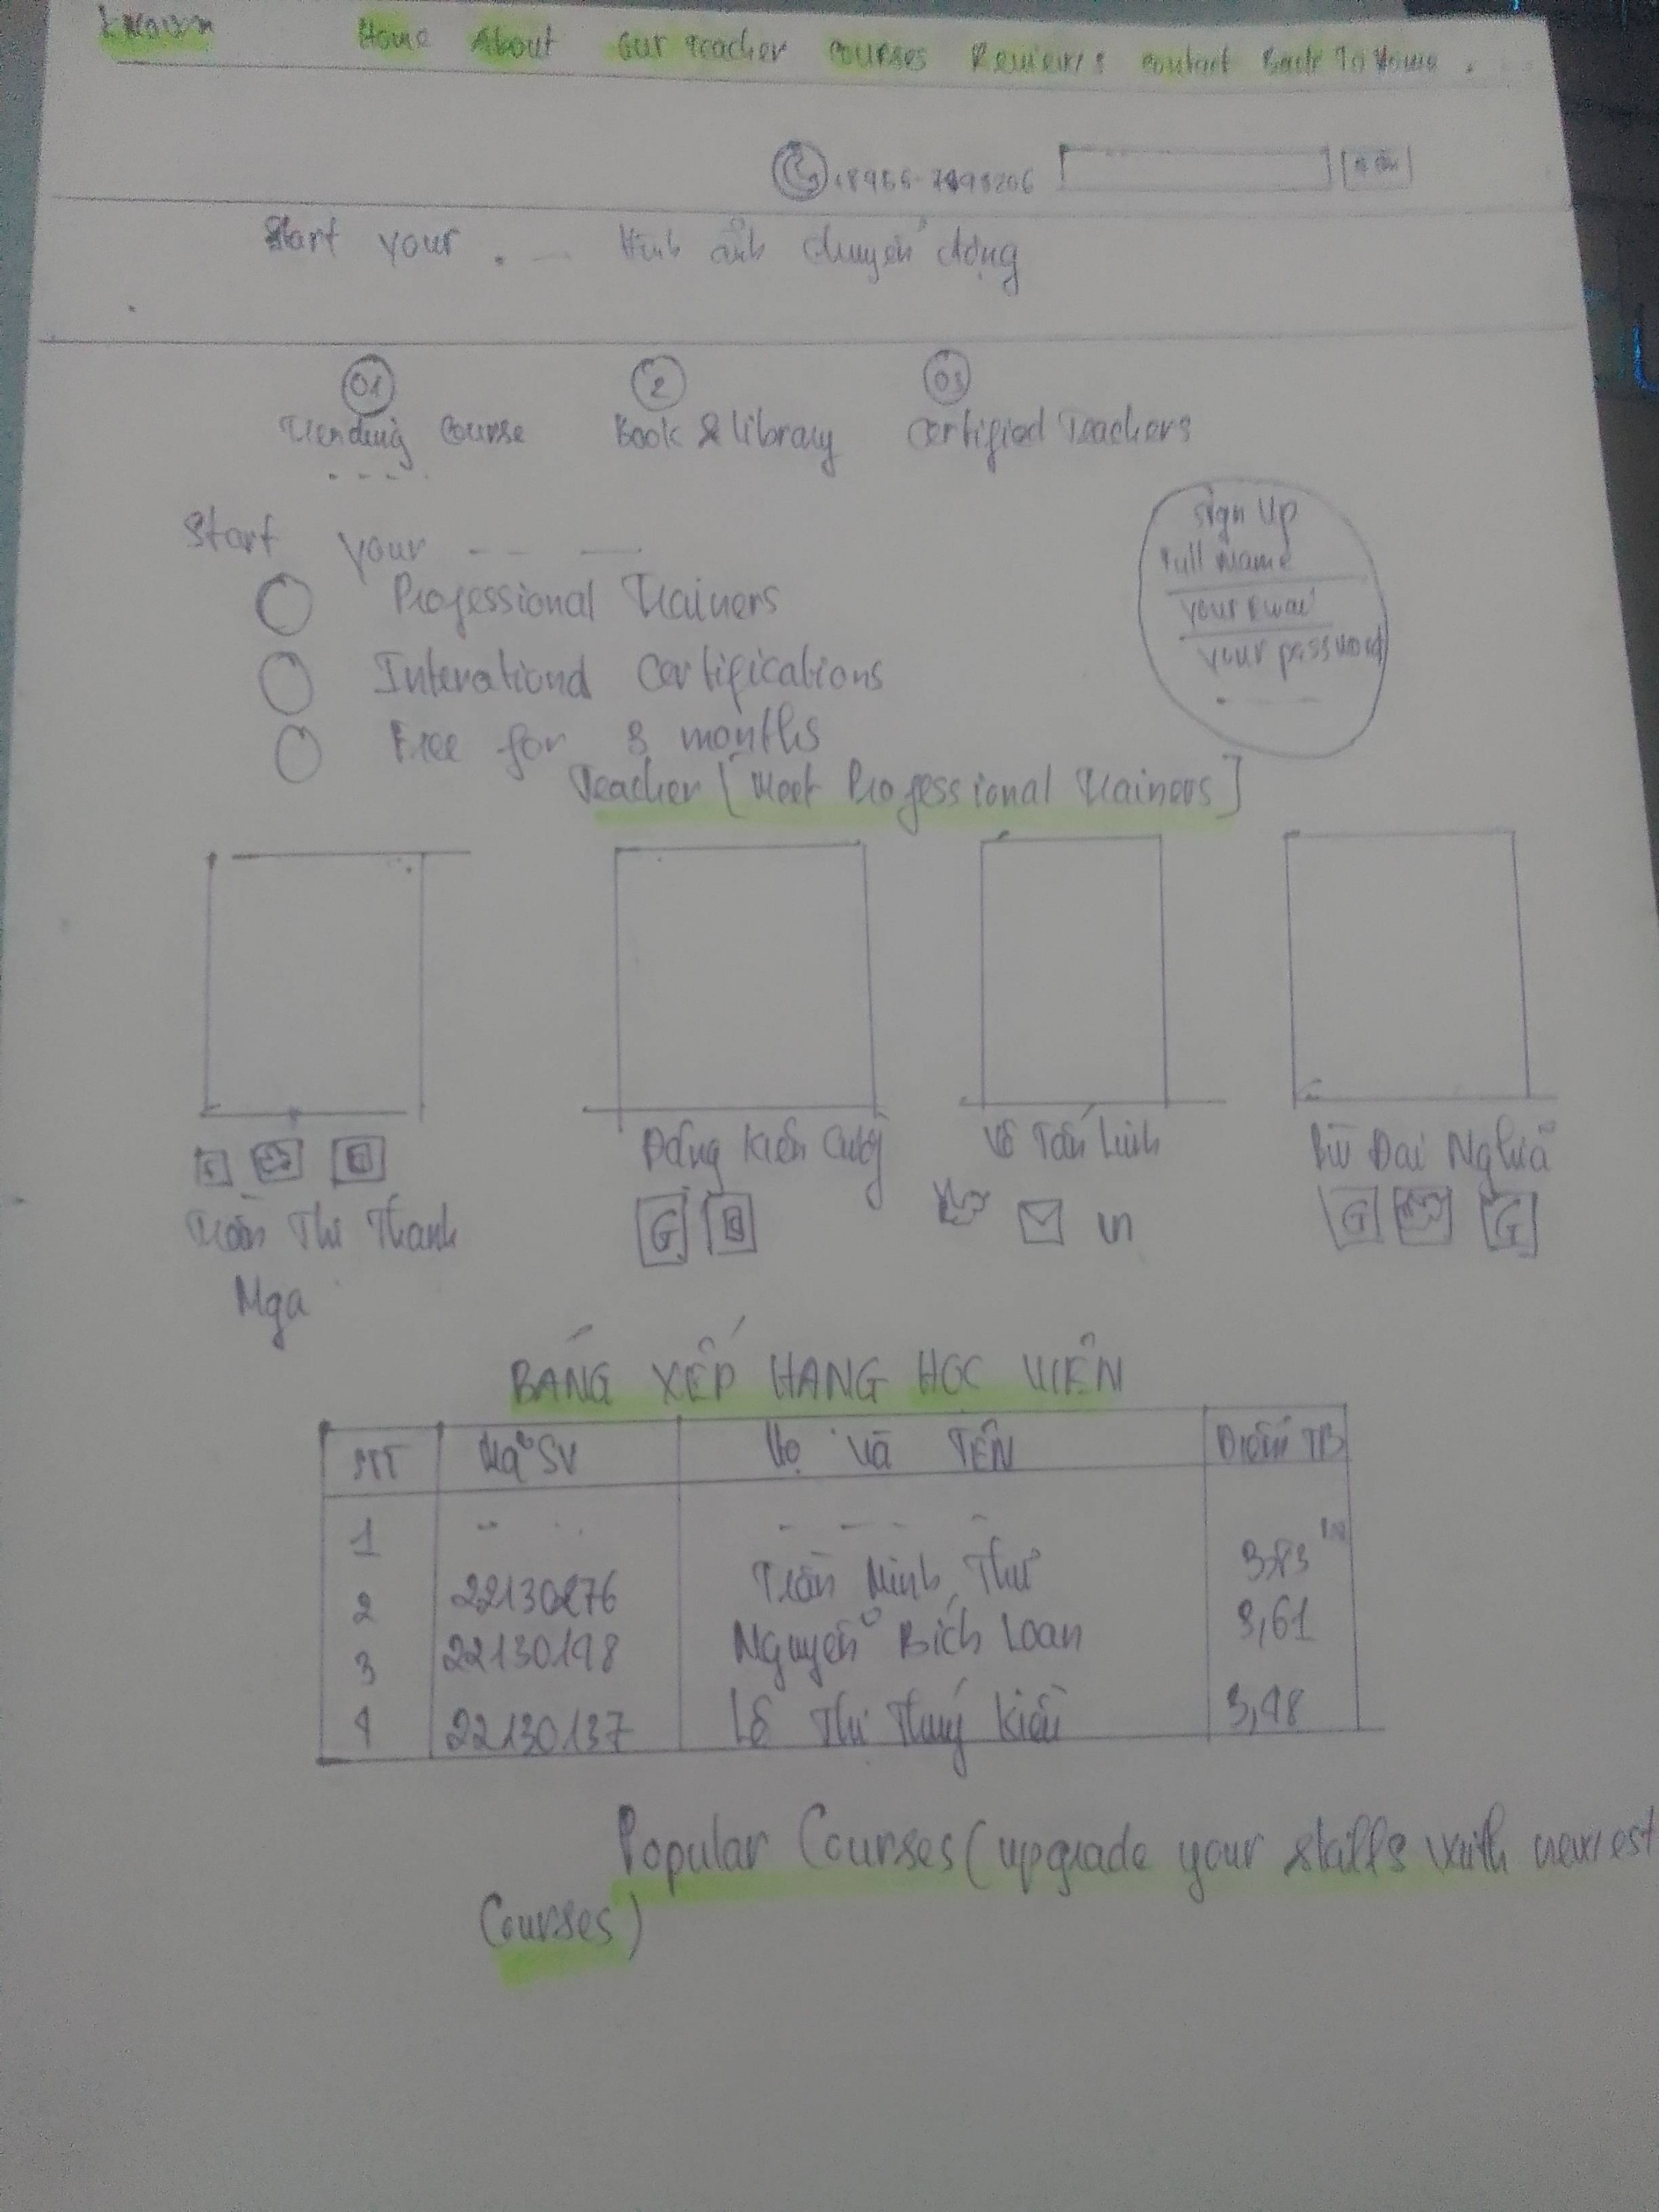 Known Home About Our Teacher Courses Reviews Contact Back To Home .
Start your . — Hình ảnh chuyển động
01 2 03
Trending Course Book & library Certified Teachers
- - - -
Start your -- —
Professional Trainers
Certifications
Free for 3 months
Sign Up
Full Name
your Email
your password
Teacher [Meet Professional Trainers]
Đặng Kiên Cường Võ Tấn Linh Bùi Đại Nghĩa
G G G
in
Trần Thị Thanh
Nga
BẢNG XẾP HẠNG HỌC VIÊN
STT Mã SV Họ Và TÊN Điểm TB
1
2 22130276 Trần Minh Thư
3 22130198 Nguyễn Bích Loan 3,61
4 22130137 Lê Thị Thuý Kiều 3,48
Popular Courses (upgrade your skills with newest
Courses)